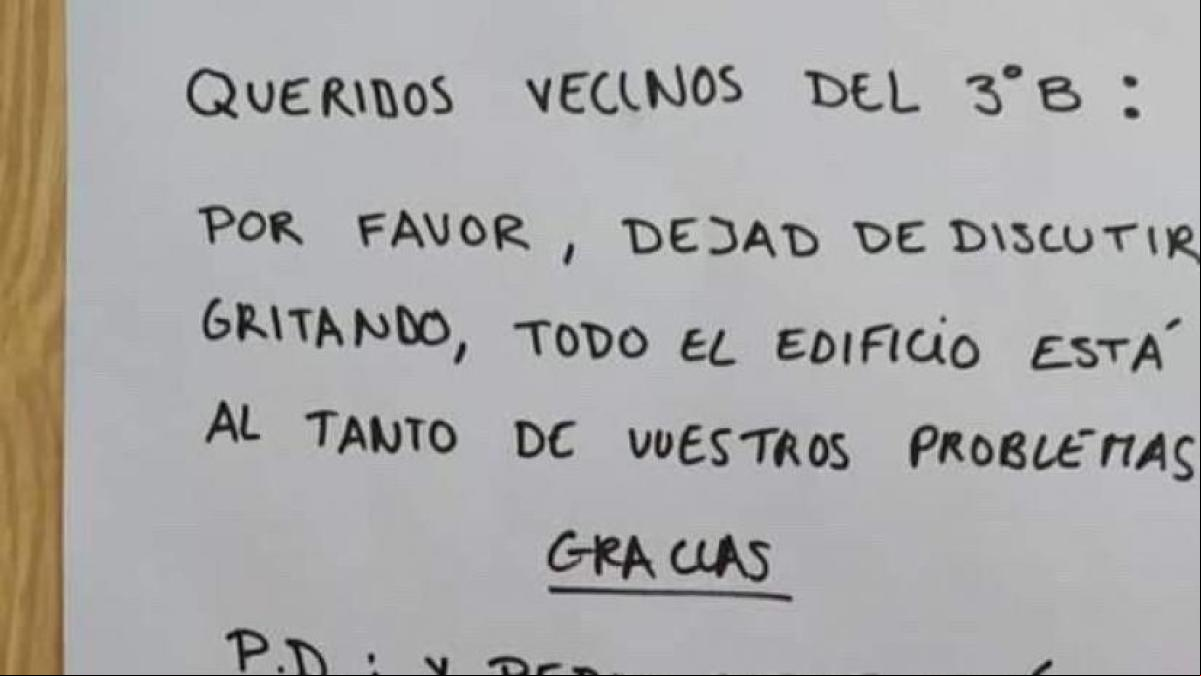 QUERIDOS VECINOS DEL 3º B :
POR FAVOR, DEJAD DE DISCUTIR
GRITANDO, TODO EL EDIFICIO ESTÁ
AL TANTO DE VUESTROS PROBLEMAS
GRACIAS
P.D : Y